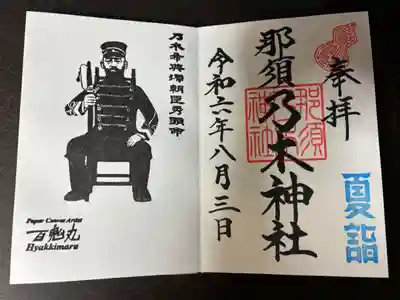 奉拝
夏詣
那須乃木神社
那須
神社
令和六年八月三日
乃木希典源朝臣
Paper Cutout Artist
百鬼丸
Hyakkimaru